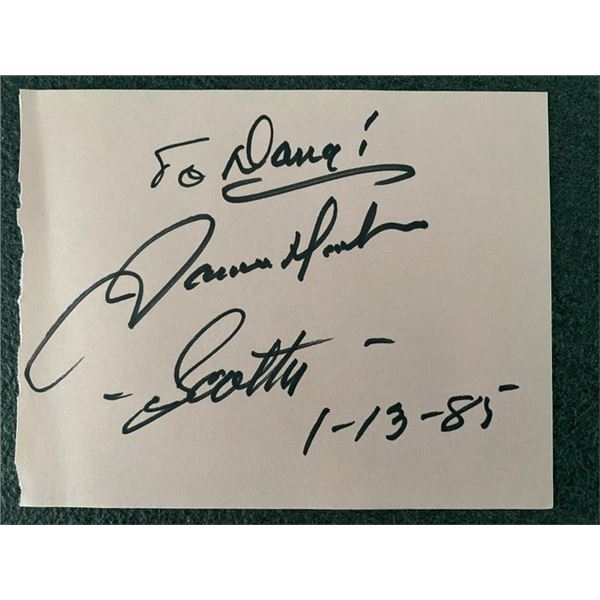 To Dana!
James Doohan
-Scotty-
1-13-85